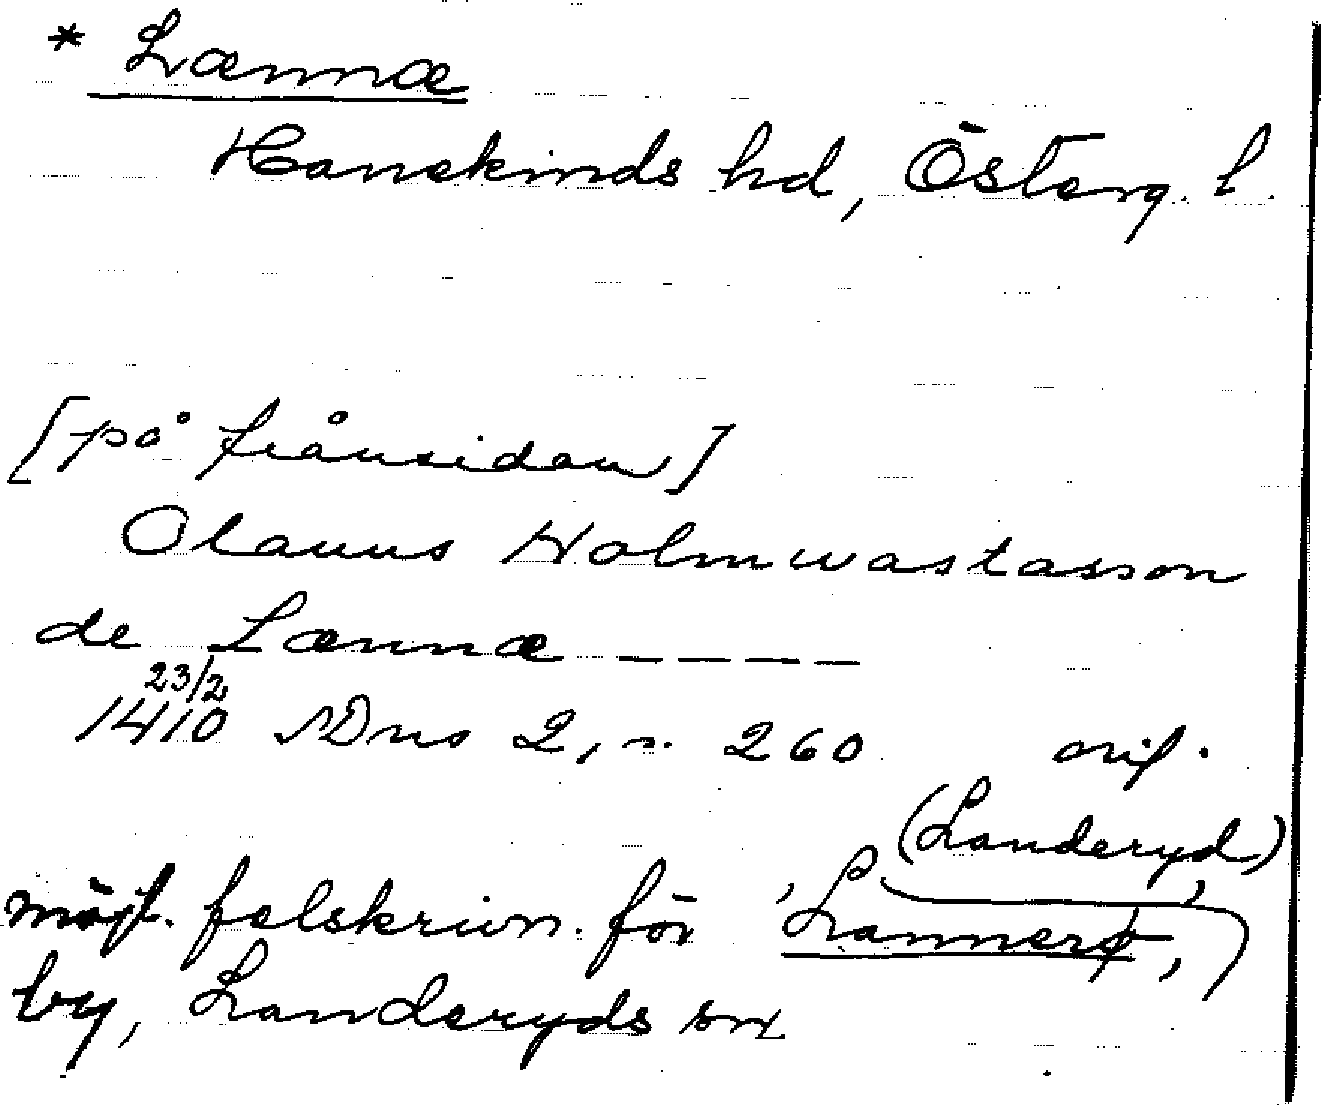 * Lænnæ
Hanekinds hd, Österg. l.
[på frånsidan]
Olauus Holmwastasson
de Lænnæ -----
23/2
1410 SDns 2, s. 260 orig.
(Landeryd)
möjl. felskrivn. för 'Lannerx,'
by, Landeryds sn